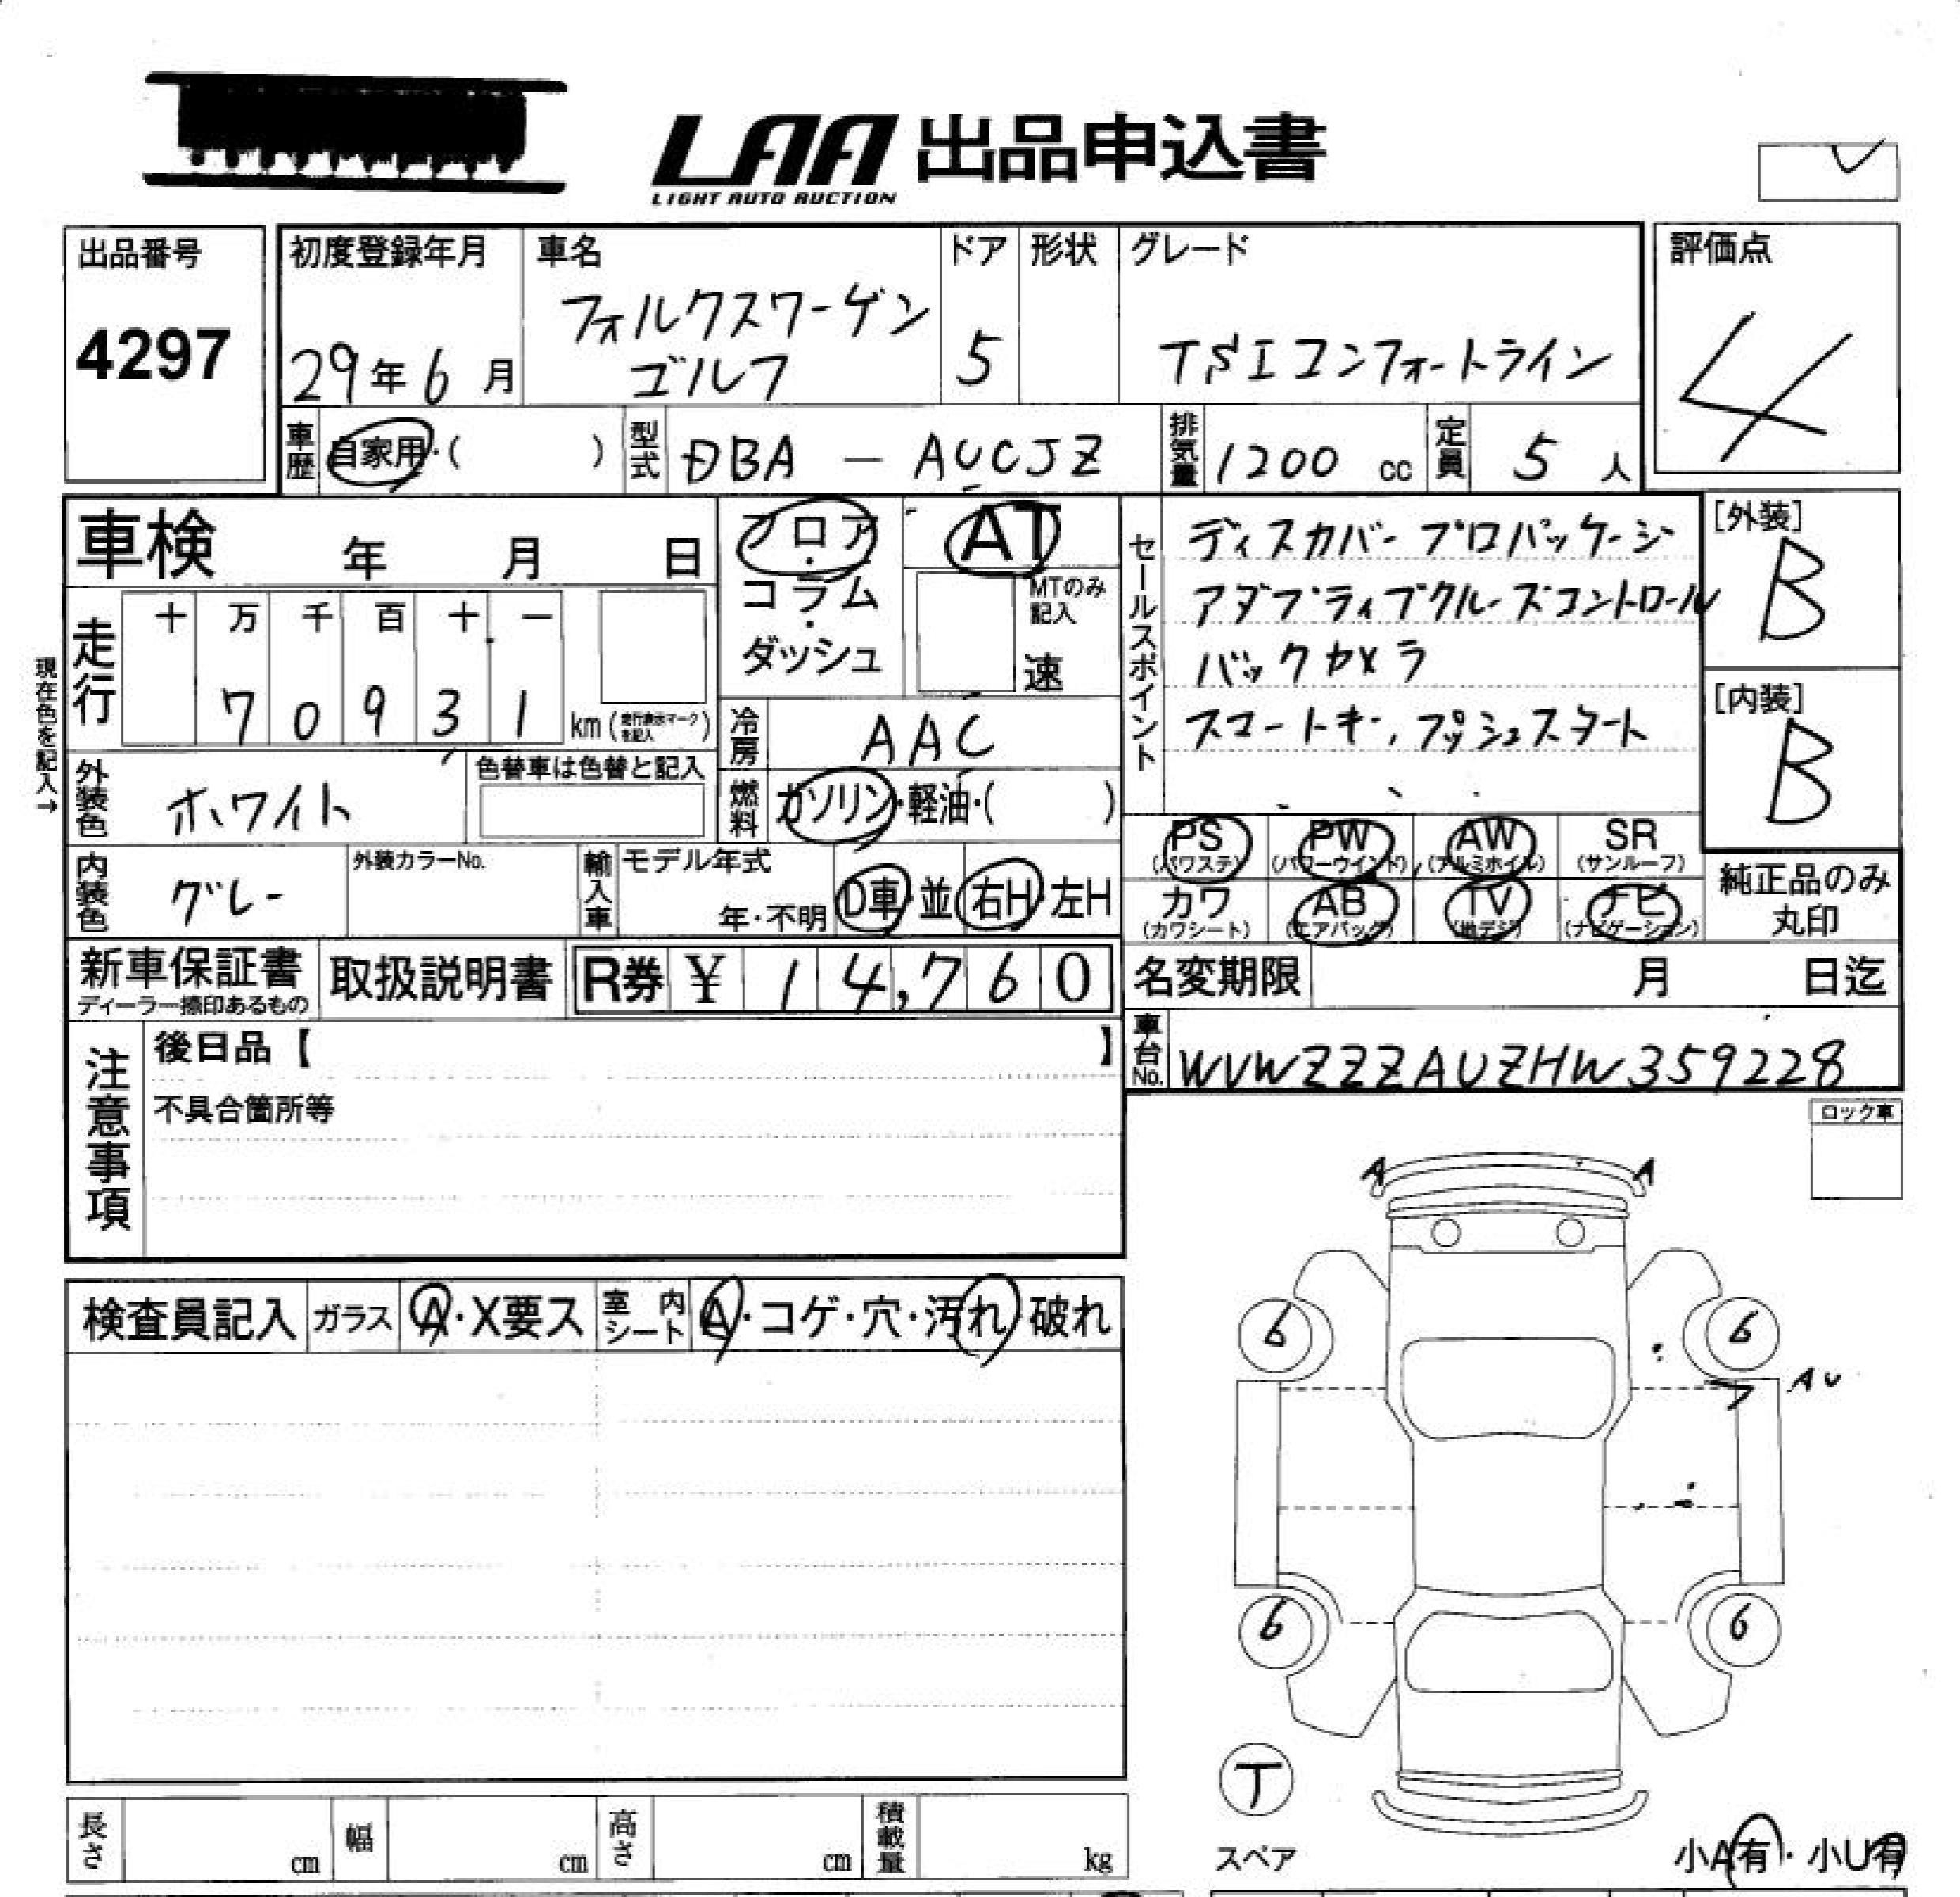 LAA 出品申込書
LIGHT AUTO AUCTION
出品番号
4297
初度登録年月
29年6月
車名
フォルクスワーゲン
ゴルフ
ドア
5
形状
グレード
TSIコンフォートライン
評価点
4
車歴
自家用・( )
型式
DBA － AUCJZ
排気量
1200 cc
定員
5 人
車検 年 月 日
フロア・
コラム・
ダッシュ
AT
MTのみ
記入
速
セールスポイント
ディスカバープロパッケージ
アダプティブクルーズコントロール
バックカメラ
スマートキー, プッシュスタート
[外装]
B
[内装]
B
現在色を記入→
走行
十 万 千 百 十 一
7 0 9 3 1 km (走行表示マークを記入)
冷房
AAC
外装色
ホワイト
色替車は色替と記入
燃料
ガソリン・軽油・( )
内装色
グレー
外装カラーNo.
輸入車
モデル年式
年・不明
D車・並
右H・左H
PS
(パワステ)
PW
(パワーウインド)
AW
(アルミホイル)
SR
(サンルーフ)
カワ
(カワシート)
AB
(エアバッグ)
TV
(地デジ)
ナビ
(ナビゲーション)
純正品のみ
丸印
新車保証書
ディーラー捺印あるもの
取扱説明書
R券 ¥ 14,760
名変期限 月 日迄
車台No.
WVWZZZAUZHW359228
注意事項
後日品【 】
不具合箇所等
ロック車
検査員記入
ガラス
A・X要ス
室内シート
A・コゲ・穴・汚れ・破れ
A
A
6
6
AU
6
6
丁
スペア
小A有・小U有
長さ cm
幅 cm
高さ cm
積載量 kg